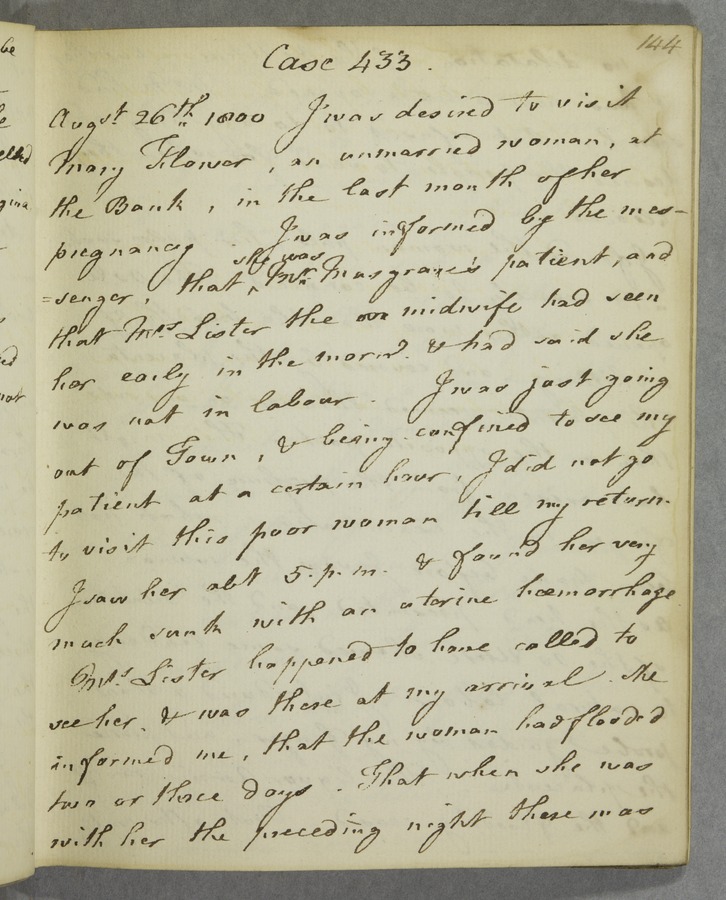 144
Case 433.
Augst. 26th 1800 I was desired to visit
Mary Flower, an unmarried woman, at
the Bank, in the last month of her
pregnancy I was informed by the mes-
=senger, that she was Mr. Musgrave's patient, and
that Mrs Lister the midwife had seen
her early in the morng. & had said she
was not in labour. I was just going
out of Town, & being confined to see my
patient at a certain hour, I did not go
to visit this poor woman till my return.
I saw her abt 5. p. m. & found her very
much sunk with an uterine hæmorrhage
Mrs. Lister happened to have called to
see her, & was there at my arrival. She
informed me, that the woman had flooded
two or three days. That when she was
with her the preceding night there was